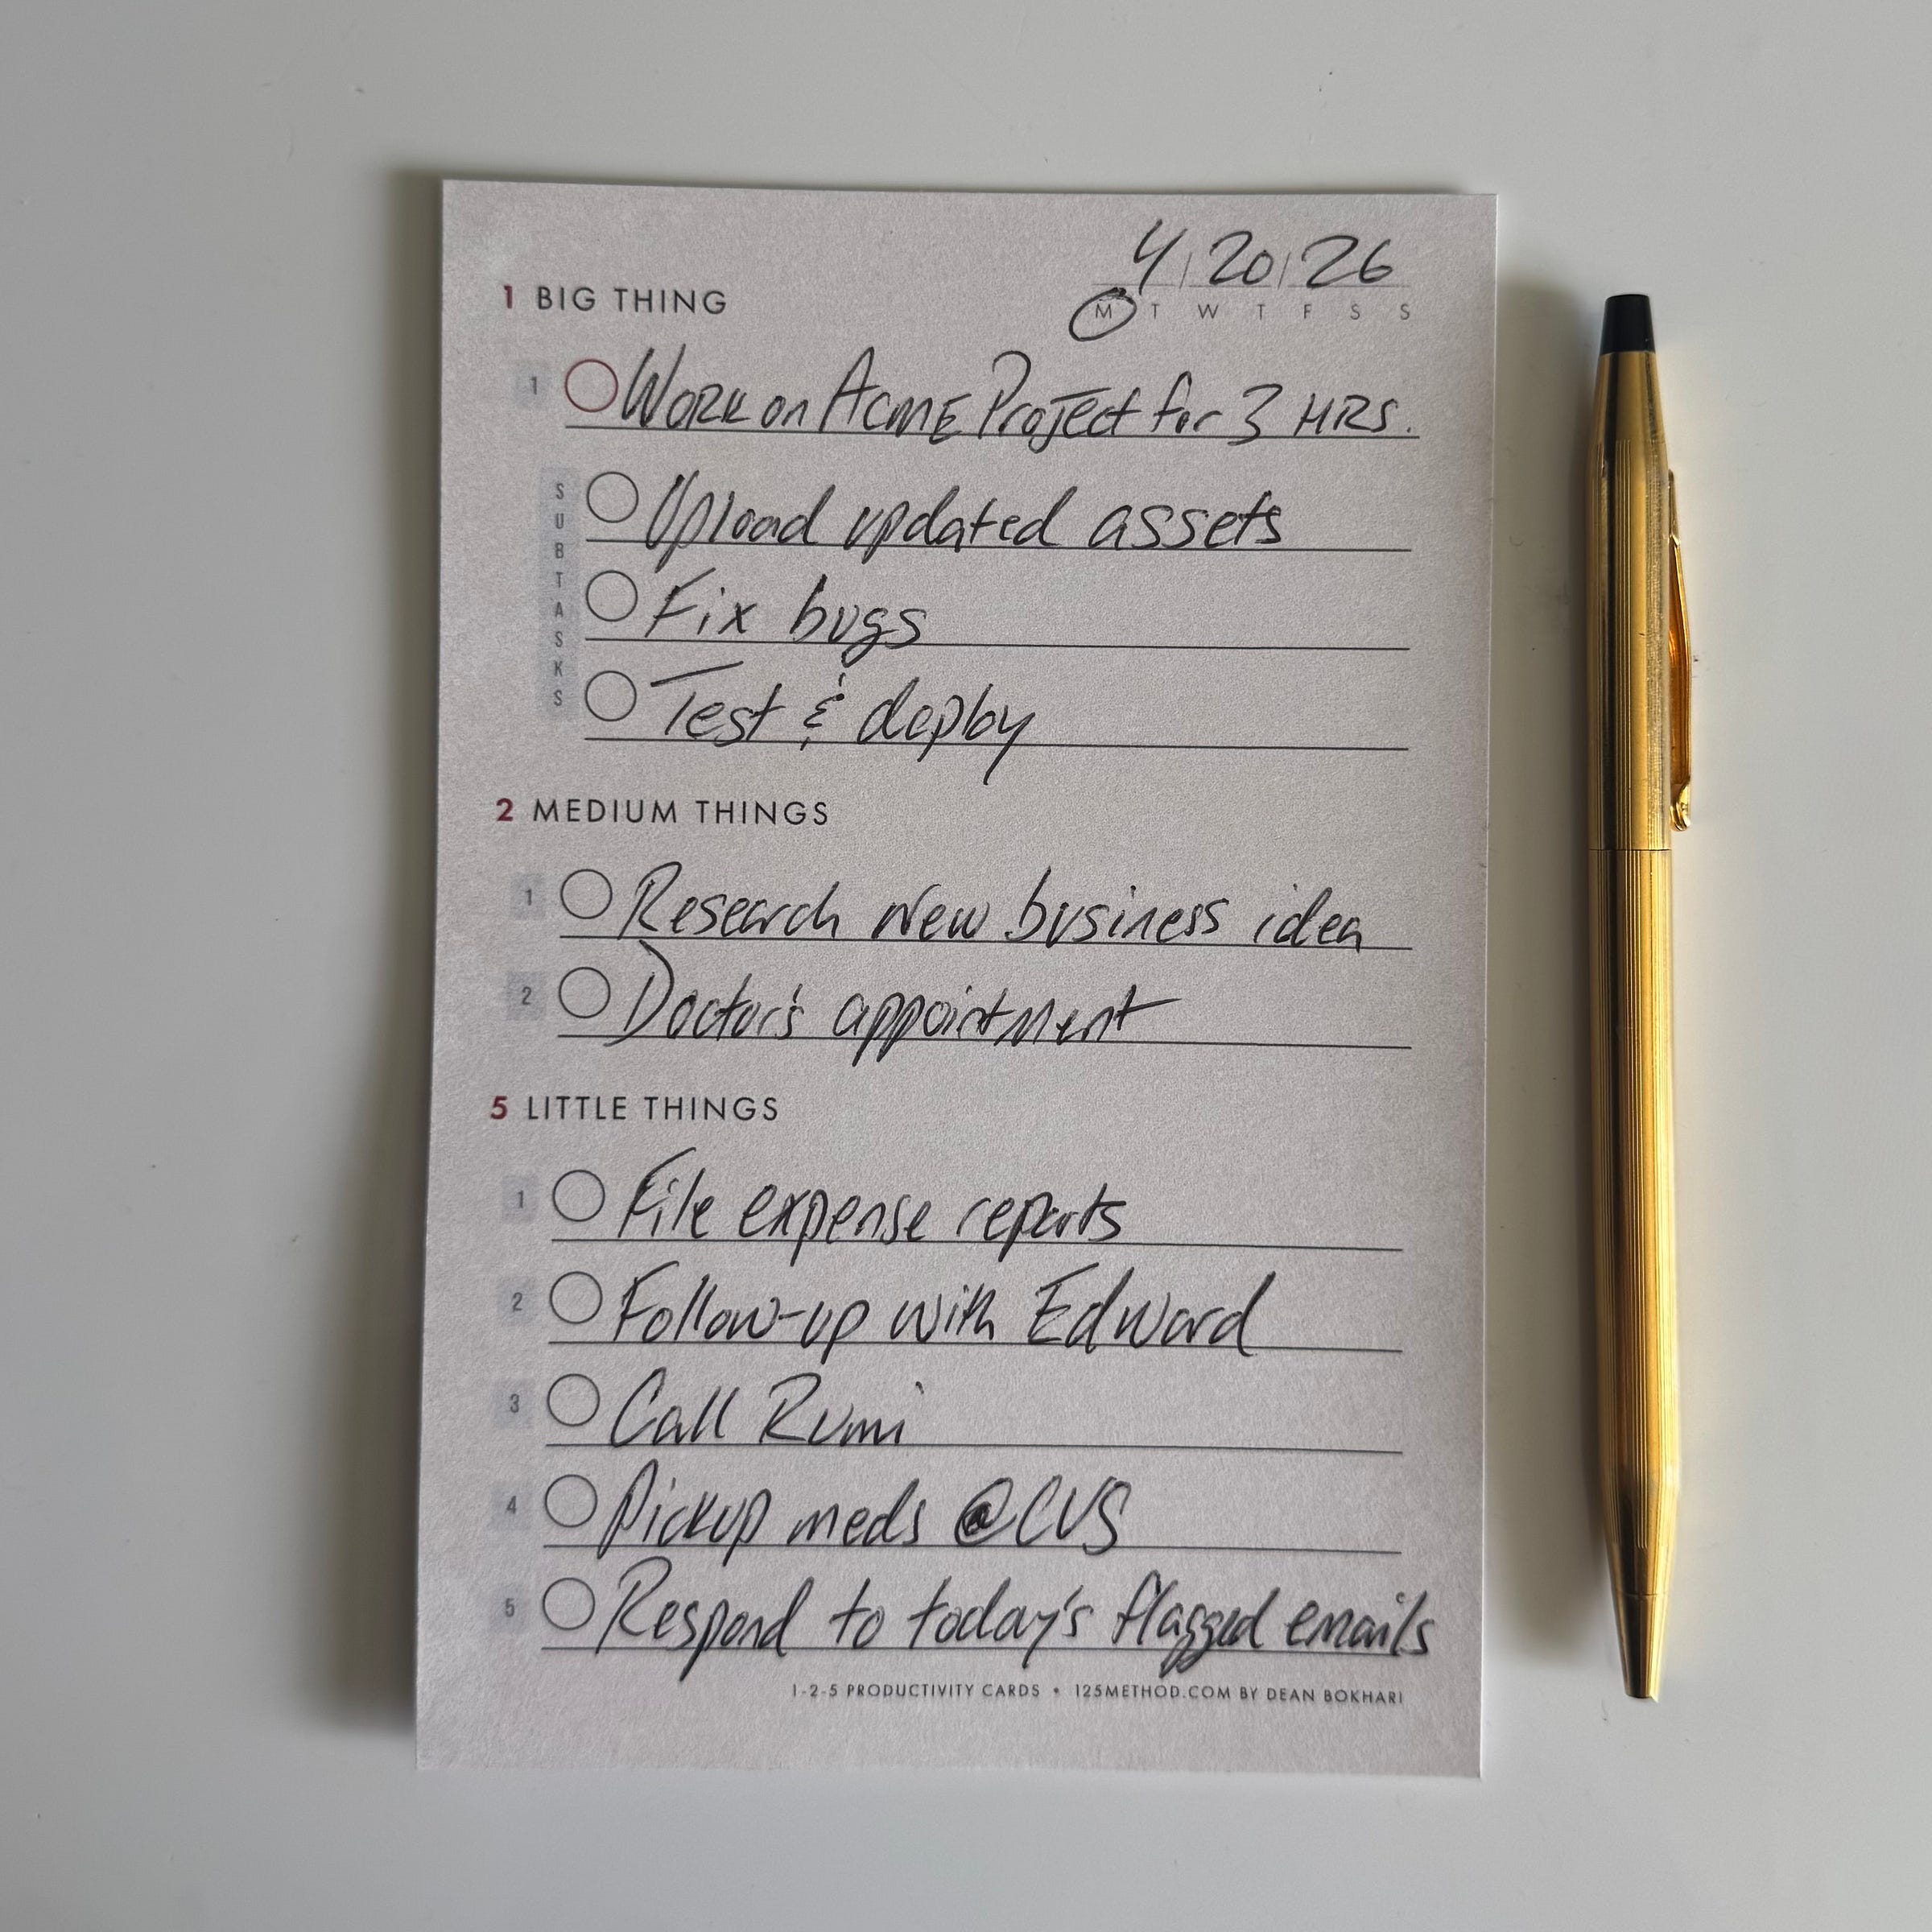 4/20/26
1 BIG THING
M T W T F S S
1 Work on Acme Project for 3 HRS.
SUBTASKS
Upload updated assets
Fix bugs
Test & deploy
2 MEDIUM THINGS
1 Research new business idea
2 Doctor's appointment
5 LITTLE THINGS
1 File expense reports
2 Follow-up with Edward
3 Call Rumi
4 Pickup meds @CVS
5 Respond to today's flagged emails
1-2-5 PRODUCTIVITY CARDS • 125METHOD.COM BY DEAN BOKHARI